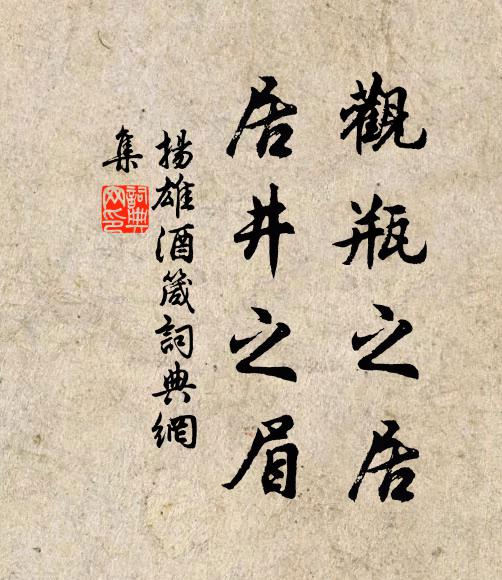 觀瓶之居
居井之眉
揚雄酒箴詞典網
集
詞典網印